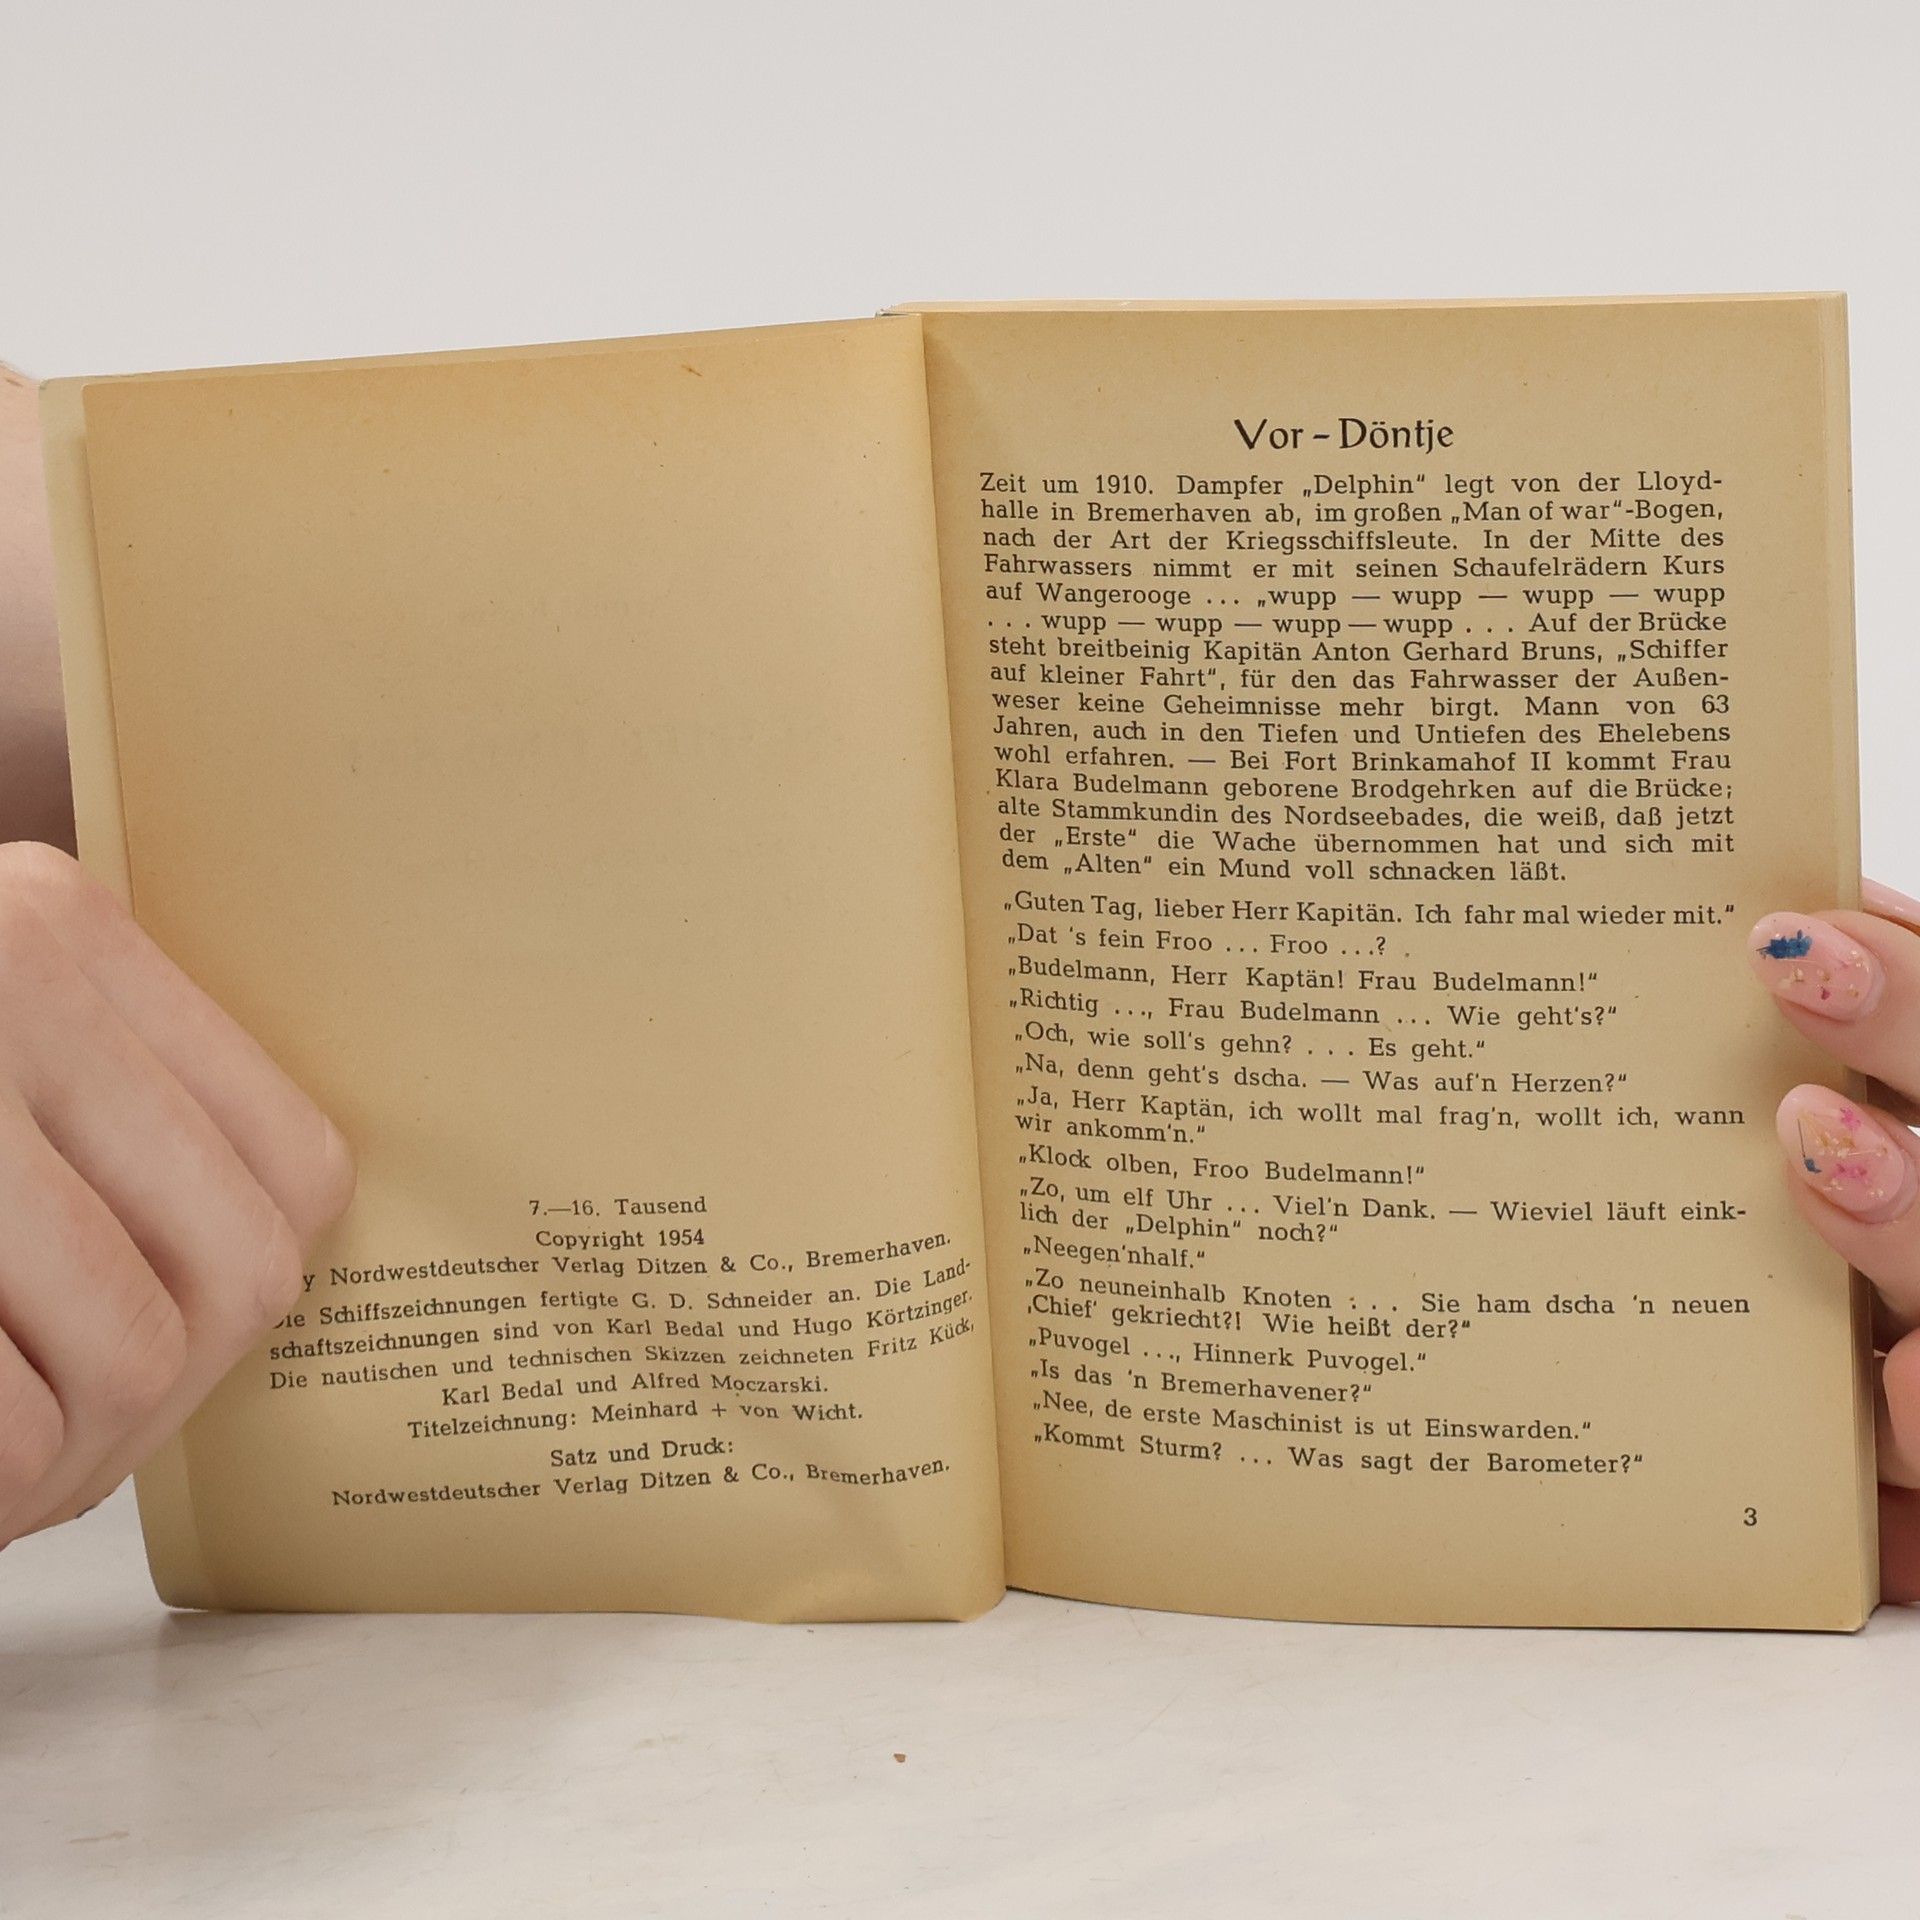 7.—16. Tausend
Copyright 1954
y Nordwestdeutscher Verlag Ditzen & Co., Bremerhaven.
Die Schiffszeichnungen fertigte G. D. Schneider an. Die Land-
schaftszeichnungen sind von Karl Bedal und Hugo Körtzinger.
Die nautischen und technischen Skizzen zeichneten Fritz Kück,
Karl Bedal und Alfred Moczarski.
Titelzeichnung: Meinhard + von Wicht.
Satz und Druck:
Nordwestdeutscher Verlag Ditzen & Co., Bremerhaven.
Vor-Döntje
Zeit um 1910. Dampfer „Delphin“ legt von der Lloyd-
halle in Bremerhaven ab, im großen „Man of war“-Bogen,
nach der Art der Kriegsschiffsleute. In der Mitte des
Fahrwassers nimmt er mit seinen Schaufelrädern Kurs
auf Wangerooge ... „wupp — wupp — wupp — wupp
... wupp — wupp — wupp — wupp ... Auf der Brücke
steht breitbeinig Kapitän Anton Gerhard Bruns, „Schiffer
auf kleiner Fahrt“, für den das Fahrwasser der Außen-
weser keine Geheimnisse mehr birgt. Mann von 63
Jahren, auch in den Tiefen und Untiefen des Ehelebens
wohl erfahren. — Bei Fort Brinkamahof II kommt Frau
Klara Budelmann geborene Brodgehrken auf die Brücke;
alte Stammkundin des Nordseebades, die weiß, daß jetzt
der „Erste“ die Wache übernommen hat und sich mit
dem „Alten“ ein Mund voll schnacken läßt.
„Guten Tag, lieber Herr Kapitän. Ich fahr mal wieder mit.“
„Dat 's fein Froo ... Froo ...?
„Budelmann, Herr Kaptän! Frau Budelmann!“
„Richtig ..., Frau Budelmann ... Wie geht's?“
„Och, wie soll's gehn? ... Es geht.“
„Na, denn geht's dscha. — Was auf'n Herzen?“
„Ja, Herr Kaptän, ich wollt mal frag'n, wollt ich, wann
wir ankomm'n.“
„Klock olben, Froo Budelmann!“
„Zo, um elf Uhr ... Viel'n Dank. — Wieviel läuft eink-
lich der „Delphin“ noch?“
„Neegen'nhalf.“
„Zo neuneinhalb Knoten ... Sie ham dscha 'n neuen
‚Chief‘ gekriecht?! Wie heißt der?“
„Puvogel ..., Hinnerk Puvogel.“
„Is das 'n Bremerhavener?“
„Nee, de erste Maschinist is ut Einswarden.“
„Kommt Sturm? ... Was sagt der Barometer?“
3